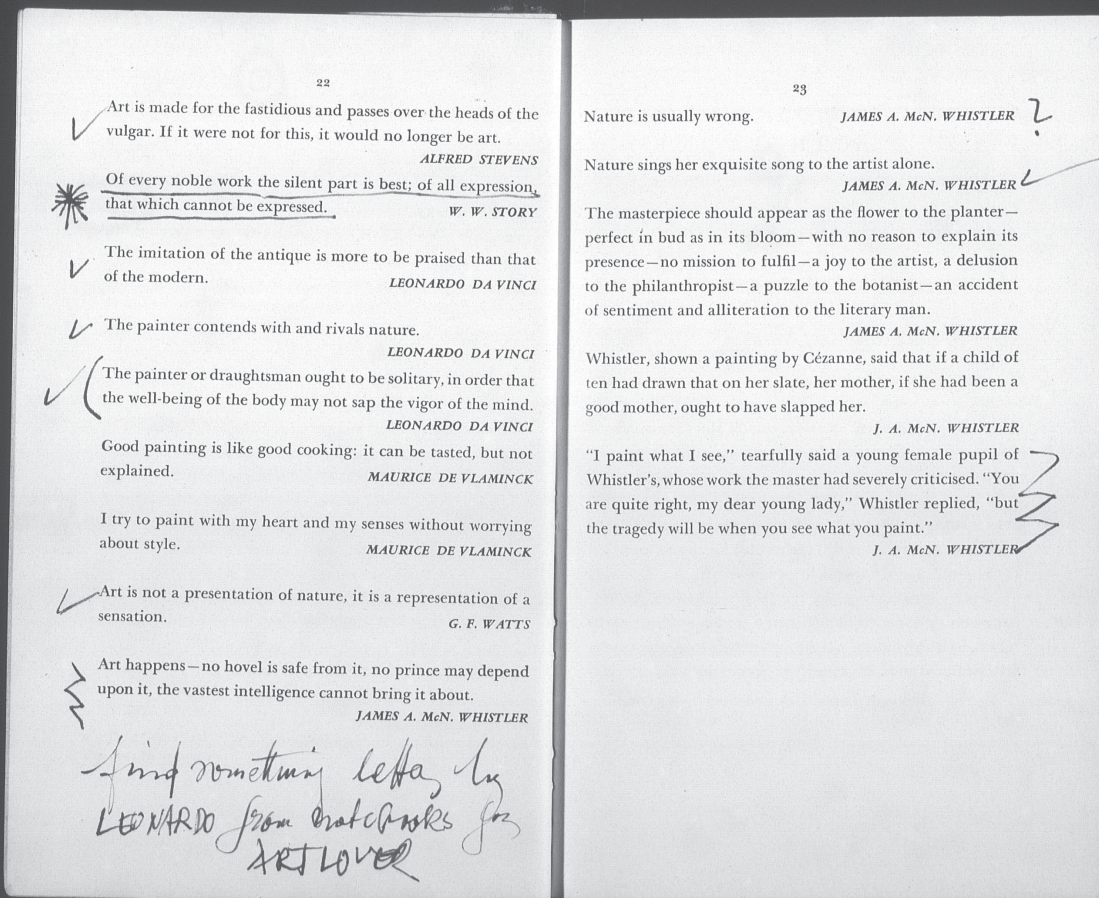 22
Art is made for the fastidious and passes over the heads of the
vulgar. If it were not for this, it would no longer be art.
ALFRED STEVENS
Of every noble work the silent part is best; of all expression,
that which cannot be expressed. W. W. STORY
The imitation of the antique is more to be praised than that
of the modern. LEONARDO DA VINCI
The painter contends with and rivals nature.
LEONARDO DA VINCI
The painter or draughtsman ought to be solitary, in order that
the well-being of the body may not sap the vigor of the mind.
LEONARDO DA VINCI
Good painting is like good cooking: it can be tasted, but not
explained. MAURICE DE VLAMINCK
I try to paint with my heart and my senses without worrying
about style. MAURICE DE VLAMINCK
Art is not a presentation of nature, it is a representation of a
sensation. G. F. WATTS
Art happens—no hovel is safe from it, no prince may depend
upon it, the vastest intelligence cannot bring it about.
JAMES A. McN. WHISTLER
find something better by
LEONARDO from notebooks for
ART LOVER
23
Nature is usually wrong. JAMES A. McN. WHISTLER ?
Nature sings her exquisite song to the artist alone.
JAMES A. McN. WHISTLER
The masterpiece should appear as the flower to the planter—
perfect in bud as in its bloom—with no reason to explain its
presence—no mission to fulfil—a joy to the artist, a delusion
to the philanthropist—a puzzle to the botanist—an accident
of sentiment and alliteration to the literary man.
JAMES A. McN. WHISTLER
Whistler, shown a painting by Cézanne, said that if a child of
ten had drawn that on her slate, her mother, if she had been a
good mother, ought to have slapped her.
J. A. McN. WHISTLER
"I paint what I see," tearfully said a young female pupil of
Whistler's, whose work the master had severely criticised. "You
are quite right, my dear young lady," Whistler replied, "but
the tragedy will be when you see what you paint."
J. A. McN. WHISTLER